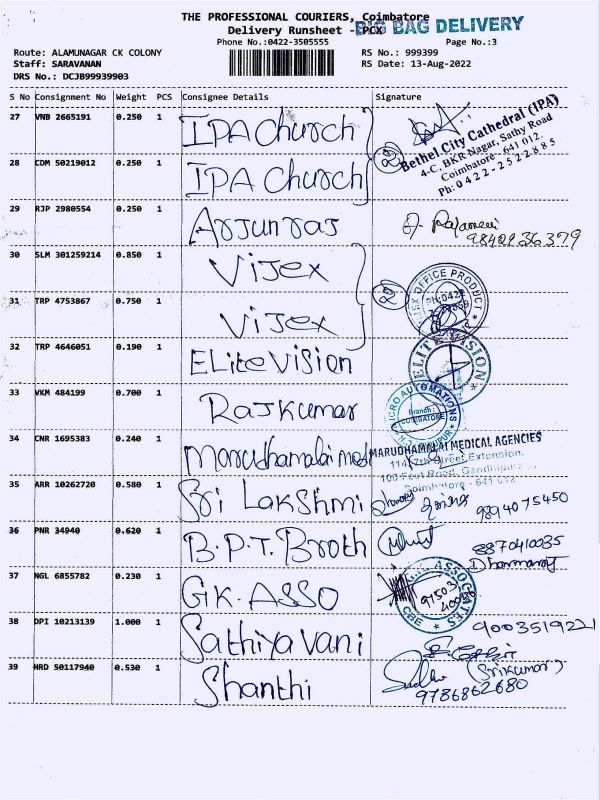 THE PROFESSIONAL COURIERS, Coimbatore
Delivery Runsheet - PCX BIG BAG DELIVERY
Phone No.:0422-3505555 Page No.:3
Route: ALAMUNAGAR CK COLONY RS No.: 999399
Staff: SARAVANAN RS Date: 13-Aug-2022
DRS No.: DCJB99939903
S No Consignment No Weight PCS Consignee Details Signature
27 VNB 2665191 0.250 1 IPA Church
Bethel City Cathedral (IPA)
4-C, BKR Nagar, Sathy Road
Coimbatore - 641 012.
Ph: 0422-2522885
28 CDM 50219012 0.250 1 IPA Church
29 RJP 2980554 0.250 1 Arjunraj
30 SLM 301259214 0.850 1 Vijex
OFFICE PRODUCT
31 TRP 4753867 0.750 1 Vijex
32 TRP 4646051 0.190 1 ELite Vision ELITE VISION
33 VKM 484199 0.700 1 Rajkumar
MICRO AUTOMATIONS
Branch:
COIMBATORE
34 CNR 1695383 0.240 1 Marudhamalai medi
MARUDHAMALAI MEDICAL AGENCIES
114, 7th Street Extension,
100 Feet Road, Gandhipuram
Coimbatore - 641 012
35 ARR 10262720 0.580 1 Sri Lakshmi 9894075450
36 PNR 34940 0.620 1 B.P.T. Broth 8870410035
37 NGL 6855782 0.230 1 GK. ASSO
G.K. ASSOCIATES
CBE
38 DPI 10213139 1.000 1 Sathiyavani 9003519221
(Srikumar)
39 HRD 50117940 0.530 1 Shanthi 9786862680